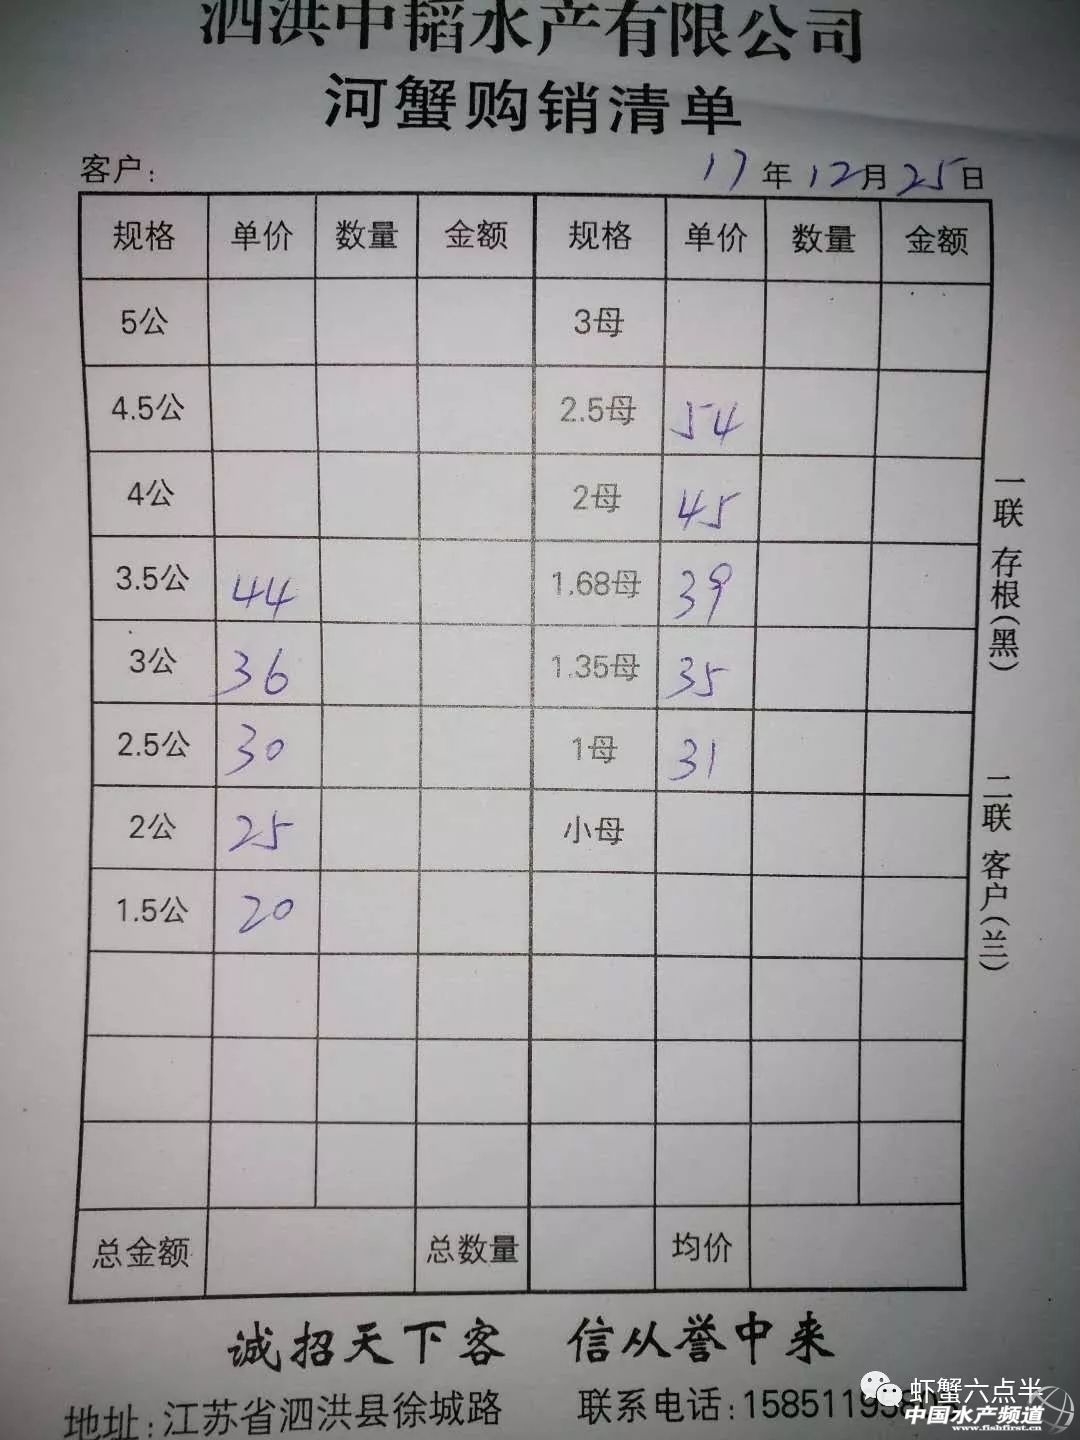 泗洪中韬水产有限公司
河蟹购销清单
客户: 17年12月25日
规格 单价 数量 金额 规格 单价 数量 金额
5公 3母
4.5公 2.5母 54
4公 2母 45
3.5公 44 1.68母 39
3公 36 1.35母 35
2.5公 30 1母 31
2公 25 小母
1.5公 20
总金额 总数量 均价
一联 存根(黑)
二联 客户(兰)
诚招天下客 信从誉中来
地址:江苏省泗洪县徐城路 联系电话:
虾蟹六点半
中国水产频道
www.fishfirst.cn